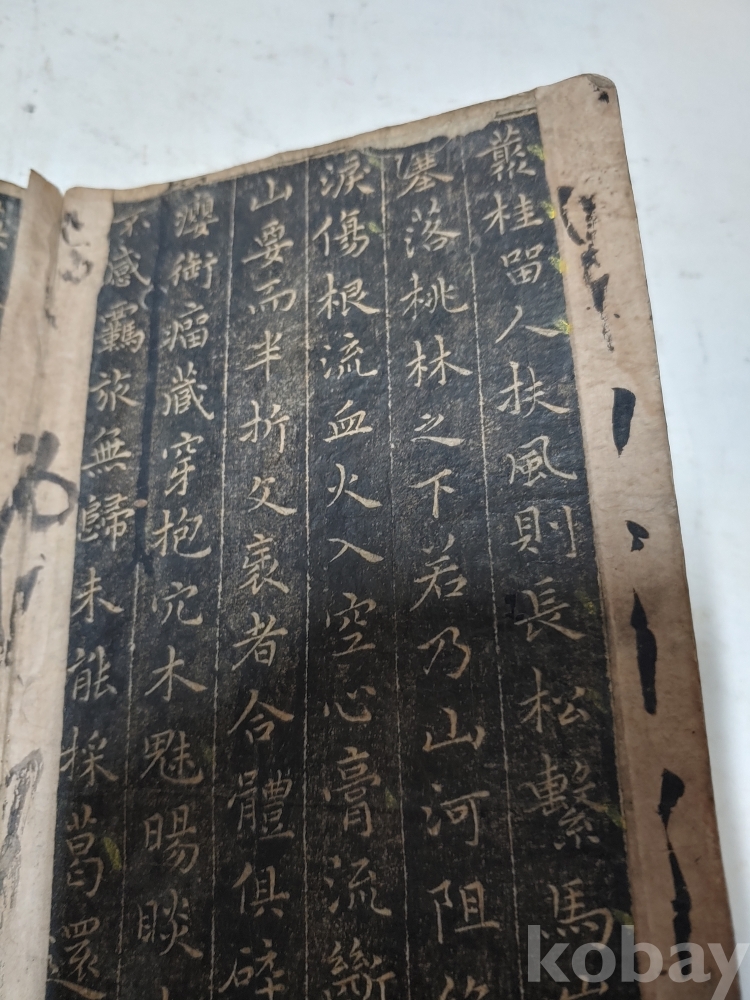 叢桂留人扶風則長松繫馬
塞落桃林之下若乃山河阻
淚傷根流血火入空心膏流斷
山要而半折文衺者合體俱碎
癭銜瘤藏穿抱穴木魅睗睒
不感羈旅無歸未能採葛還
kobay